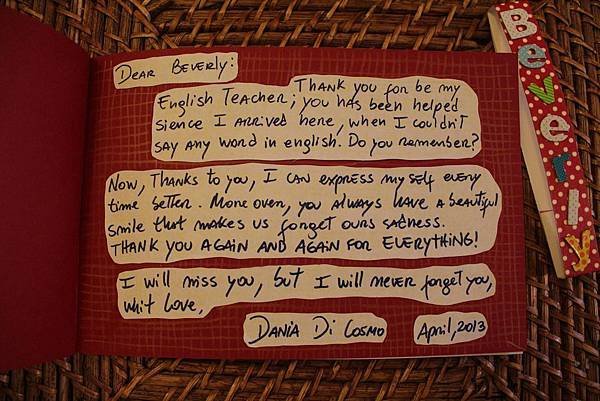 DEAR BEVERLY:
THANK YOU for be my
English Teacher; you has been helped
sience I arrived here, when I couldn't
say any word in english. Do you remember?
Now, Thanks to you, I can express my self every
time better. More over, you always have a beautiful
smile that makes us forget ours sadness.
THANK YOU AGAIN AND AGAIN FOR EVERYTHING!
I will miss you, but I will never forget you,
whit love,
DANIA Di COSMO
April, 2013
Beverly